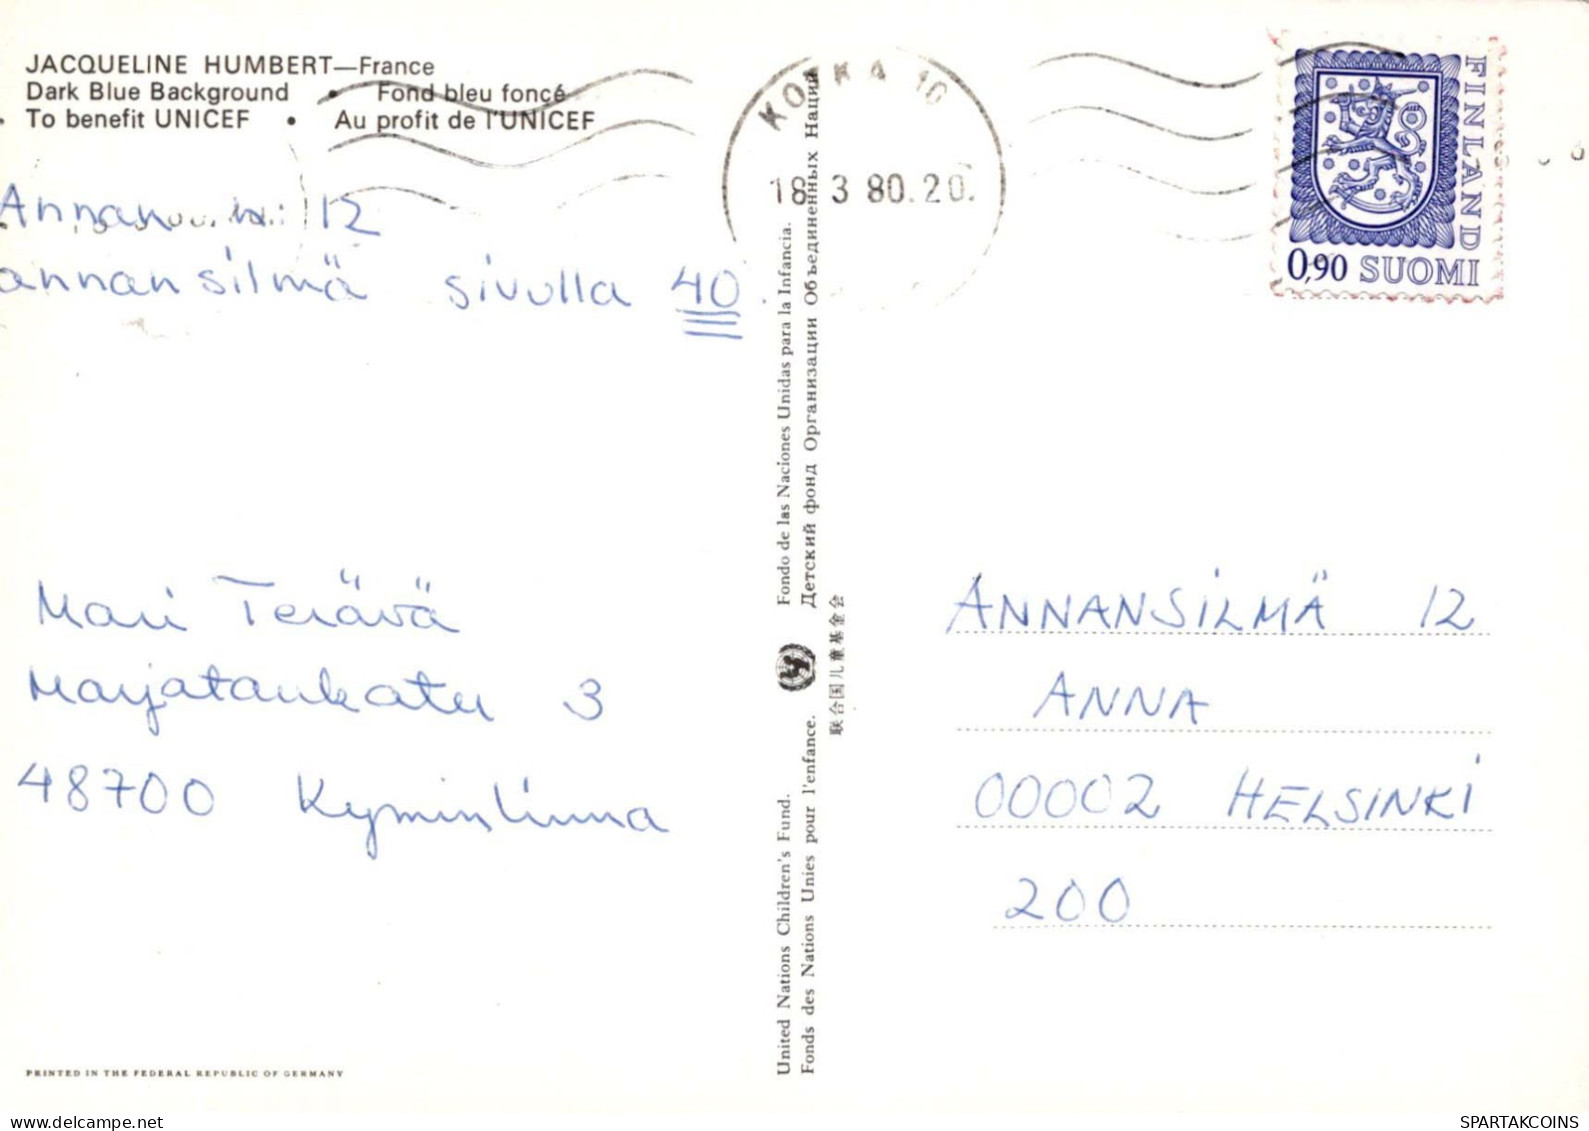 JACQUELINE HUMBERT—France
Dark Blue Background • Fond bleu foncé
• To benefit UNICEF • Au profit de l'UNICEF
Annan n: 12
annansilmä sivulla 40.
Mari Terävä
Marjatankatu 3
48700 Kyminlinna
PRINTED IN THE FEDERAL REPUBLIC OF GERMANY
United Nations Children's Fund. Fondo de las Naciones Unidas para la Infancia.
Fonds des Nations Unies pour l'enfance. Детский фонд Организации Объединенных Наций
联合国儿童基金会
KOTKA 10
18.3 80.20.
FINLAND
0,90 SUOMI
ANNANSILMÄ 12
ANNA
00002 HELSINKI
200
SPARTAKCOINS